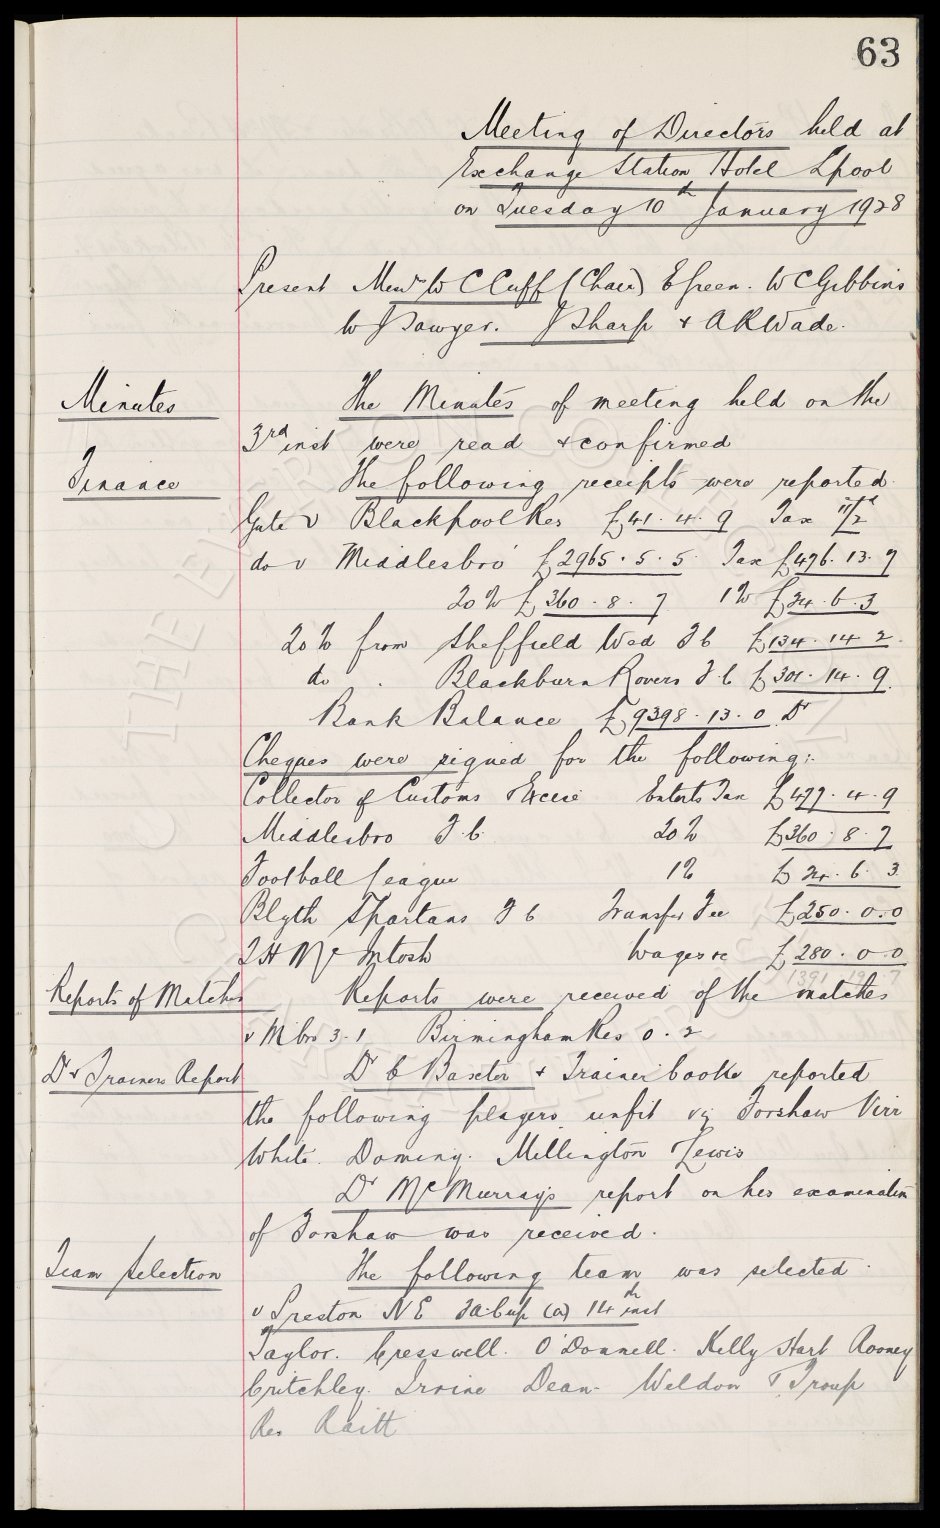 63
Meeting of Directors held at
Exchange Station Hotel Lpool
on Tuesday 10th January 1928
Present Messrs W C Cuff (Chair) E Green. W C Gibbins
W J Sawyer. J Sharp & A R Wade.
Minutes The Minutes of meeting held on the
3rd inst were read & confirmed
Finance The following receipts were reported.
Gate v Blackpool Res £41. 4. 9 Tax 11/2d
do v Middlesbro' £2965. 5. 5 Tax £476. 13. 7
20% £360. 8. 7 1% £24. 6. 3
20% from Sheffield Wed F C £134. 14. 2.
do . Blackburn Rovers F C £301. 14. 9.
Bank Balance £9398. 13. 0 Dr
Cheques were signed for the following:-
Collector of Customs & Excise Entents Tax £477. 4. 9
Middlesbro F. C. 20% £360. 8. 7
Football League 1% £24. 6. 3
Blyth Spartans F C Transfer Fee £250. 0. 0
T H McIntosh Wages &c £280. 0. 0
Reports of Matches Reports were received of the matches
v M'bro 3. 1 Birmingham Res 0. 2
Dr & Trainers Report Dr C Baxter & Trainer Cooke reported
the following players unfit viz Forshaw Virr
White. Dominy. Millington Lewis
Dr McMurray's report on his examination
of Forshaw was received.
Team Selection The following team was selected.
v Preston N E F A Cup (a) 14th inst
Taylor. Cresswell. O'Donnell. Kelly Hart Rooney
Critchley. Irvine Dean. Weldon & Troup
Res Raitt